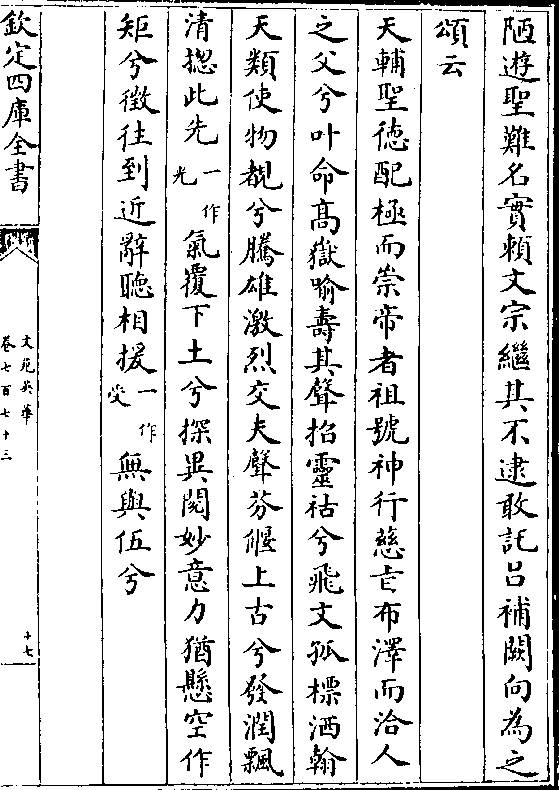 陋遊聖難名實頼文宗繼其不逮敢託吕補闕向為之
頌云
天輔聖徳配極而崇帝者祖號神行慈〓布澤而洽人
之父兮叶命髙嶽喻壽其聲招靈祜兮飛文孤標洒翰
天類使物覩兮騰雄激烈交夫聲芬〓上古兮發潤飄
清揔此先一作光氣覆下土兮探異閲妙意力猶懸空作
矩兮徴往到近辭聴相援一作受無與伍兮
欽定四庫全書
文苑英華
卷七百七十三
十七